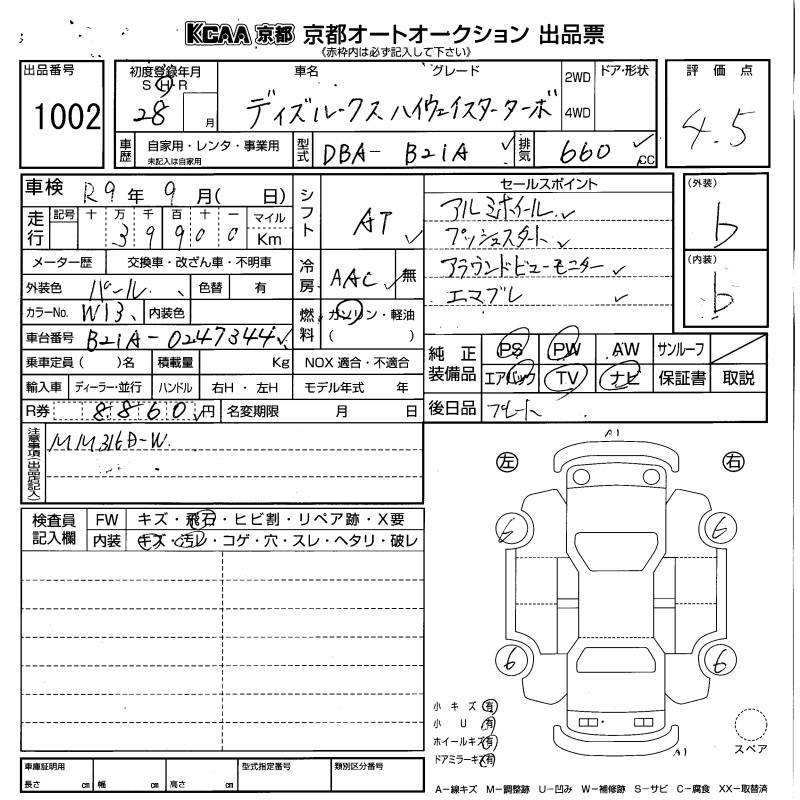 KCAA 京都 京都オートオークション 出品票
《赤枠内は必ず記入して下さい》
出品番号
1002
初度登録年月
S H R
28 月
車名
グレード
ディズルークス ハイウェイスターターボ
2WD
4WD
ドア・形状
評価点
4.5
車歴
自家用・レンタ・事業用
未記入は自家用
型式
DBA- B21A
排気
660 cc
車検 R9年 9月( 日)
走行
記号 十 万 千 百 十 一 マイル
3 9 9 0 0 Km
シフト
AT
セールスポイント
アルミホイール
プッシュスタート
アラウンドビューモニター
エマブレ
(外装)
b
(内装)
b
メーター歴 交換車・改ざん車・不明車
外装色 パール 色替 有
冷房
AAC 無
カラーNo. W13 内装色
燃料
ガソリン・軽油
( )
車台番号 B21A-0247344
乗車定員( )名 積載量 Kg NOX 適合・不適合
輸入車 ディーラー・並行 ハンドル 右H・左H モデル年式 年
R券 8860円 名変期限 月 日
純正装備品
PS PW AW サンルーフ
エアバック TV ナビ 保証書 取説
後日品 プレート
注意事項(出品店記入)
MM316D-W
検査員記入欄
FW キズ・飛石・ヒビ割・リペア跡・X要
内装 キズ・汚レ・コゲ・穴・スレ・ヘタリ・破レ
A1
左 右
6 6
6 6
小キズ 有
小U 有
ホイールキズ 有
ドアミラーキズ 有
A1
スペア
車庫証明用
長さ cm 幅 cm 高さ cm
型式指定番号
類別区分番号
A−線キズ M−調整跡 U−凹み W−補修跡 S−サビ C−腐食 XX−取替済